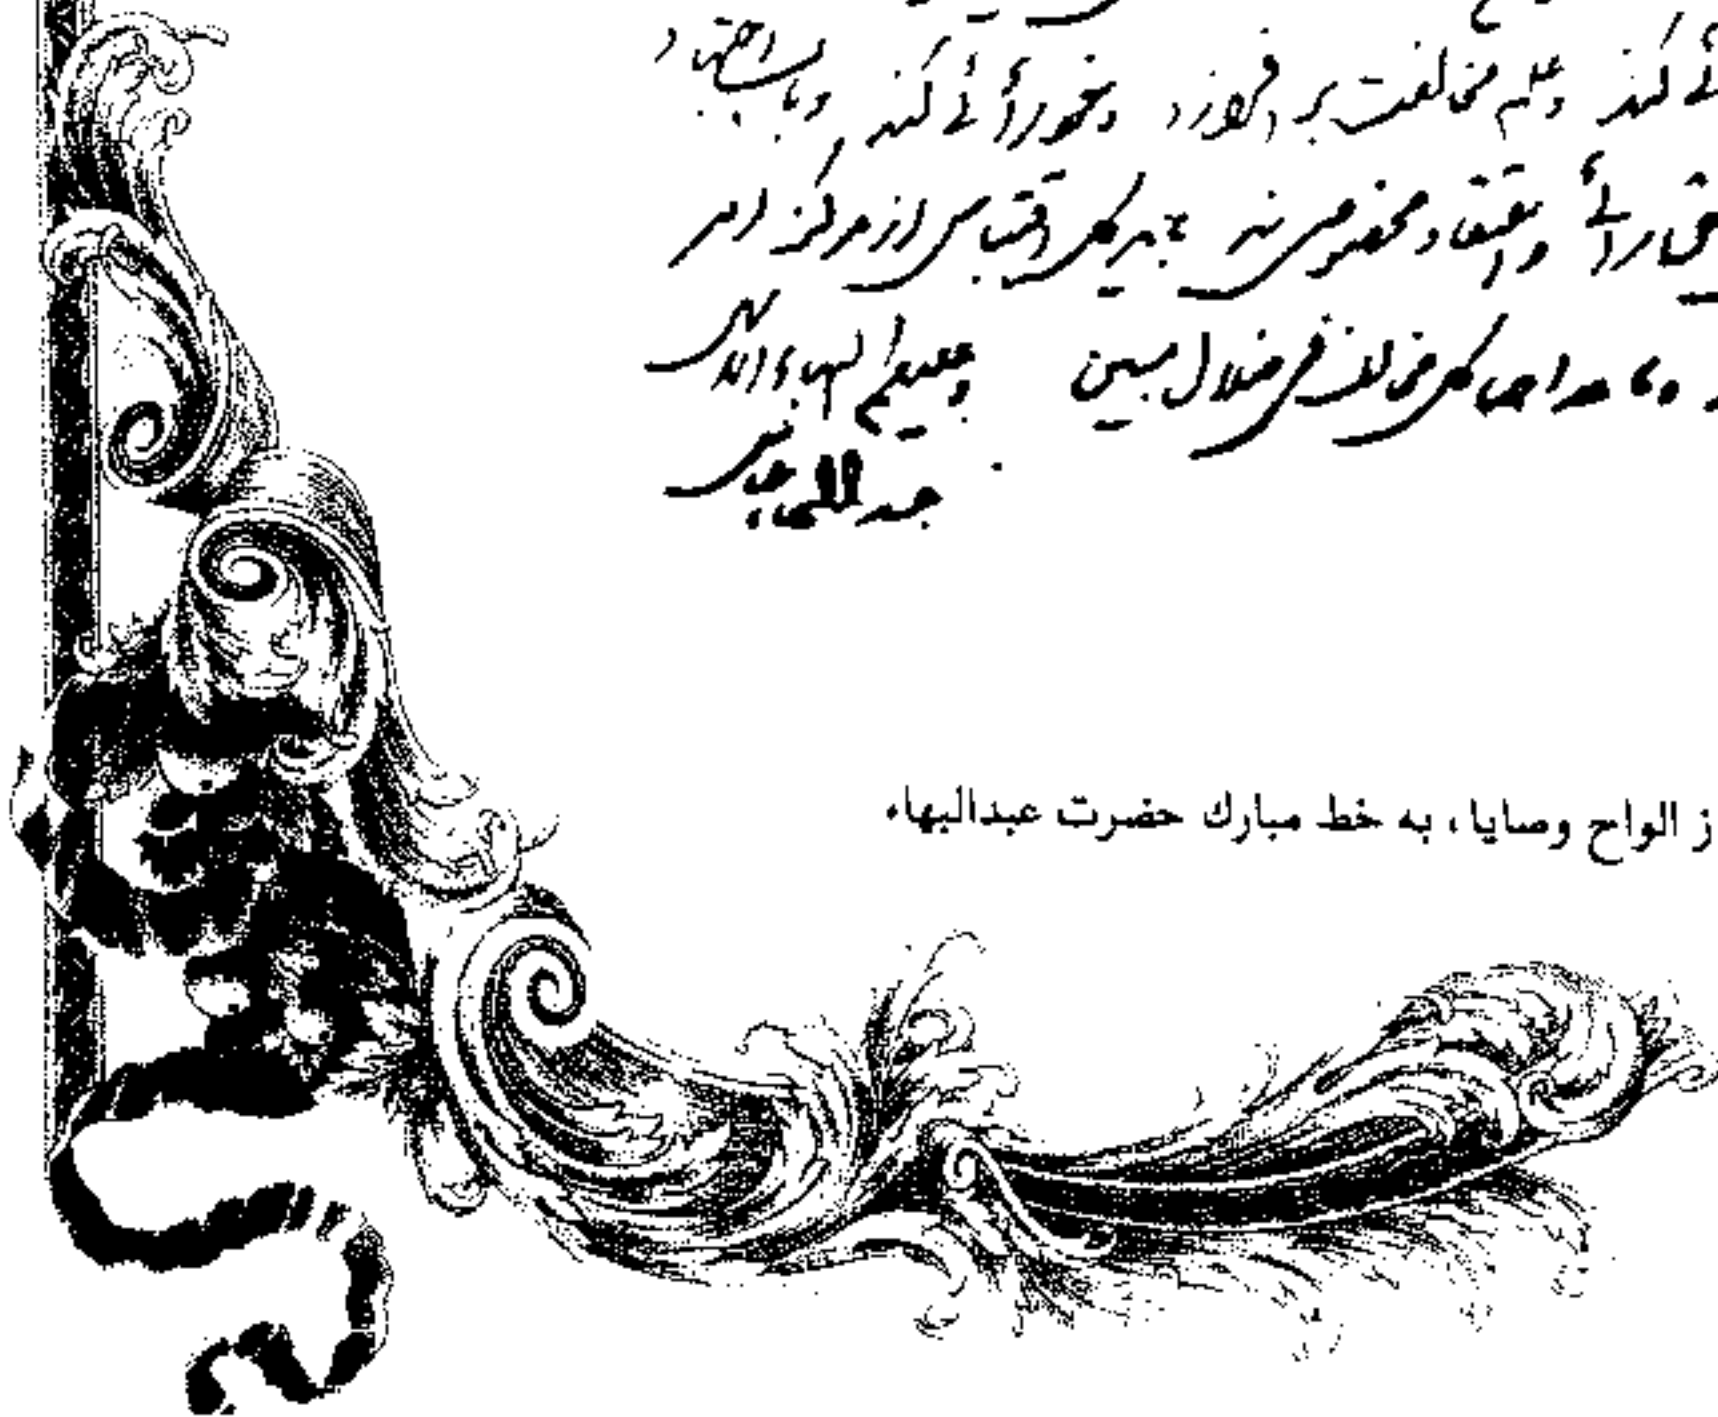 کند و علم مخالفت بر افرازد و خودرأئی کند و باب اجتهاد
رأی و اعتقاد مخصوصی نه باید کل اقتباس از مرکز امر
و ما عداهما کل مخالف فی ضلال مبین و علیکم البهاء الابهی
عبدالبهاء عباس
ز الواح وصایا، به خط مبارك حضرت عبدالبهاء